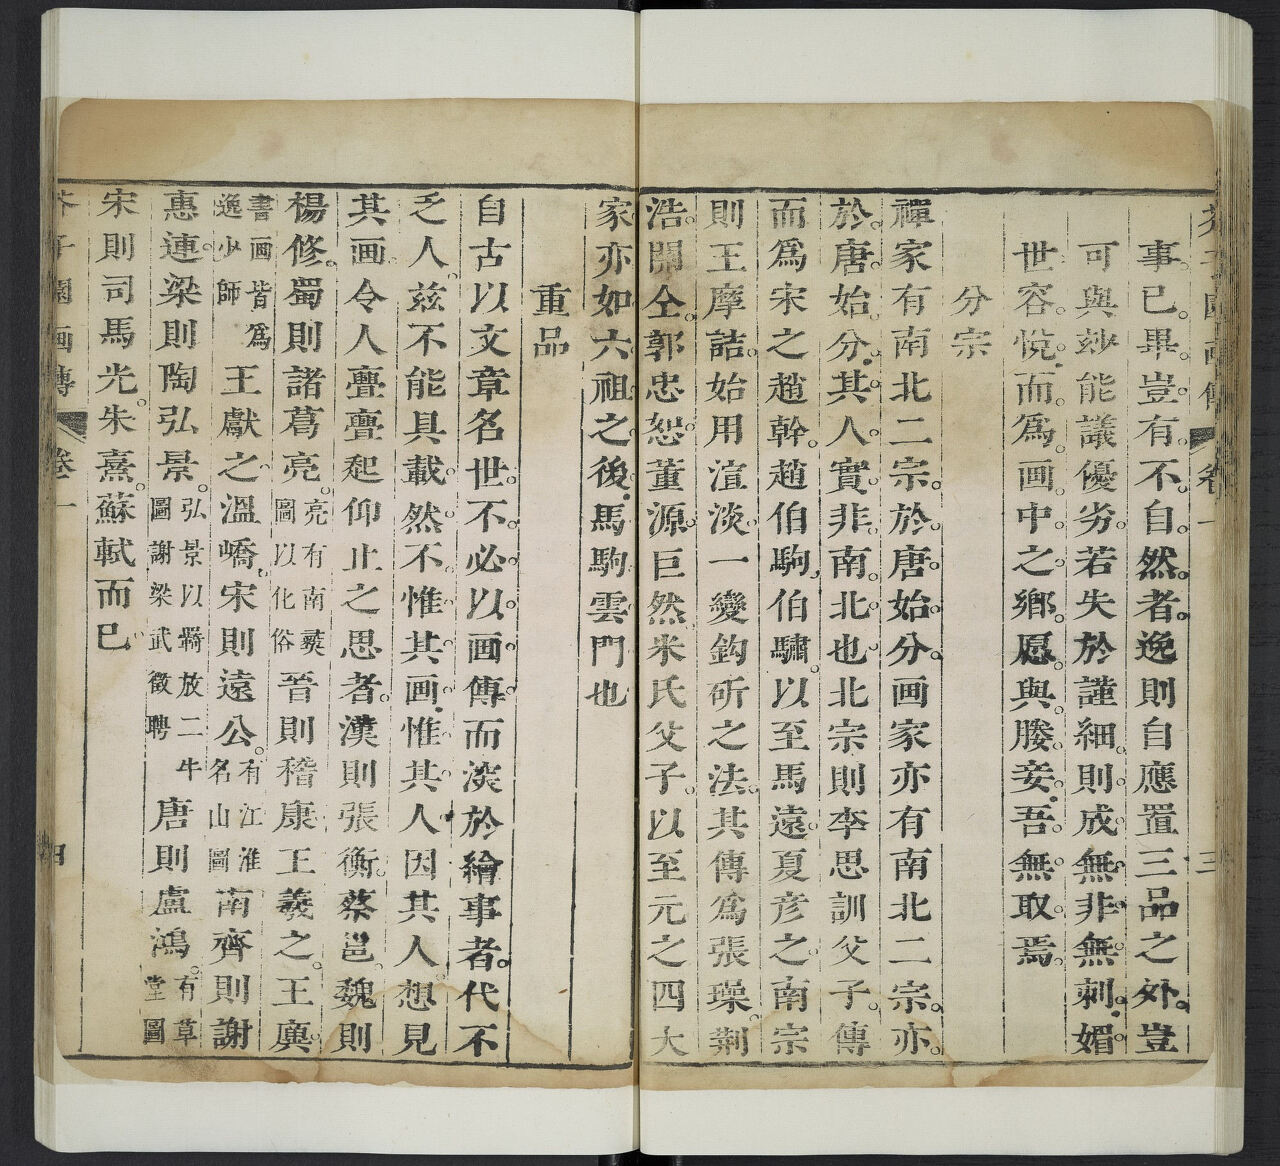 事已畢豈有不自然者逸則自應置三品之外豈
可與玅能議優劣若失於謹細則成無非無刺媚
世容悅而爲画中之鄉愿與媵妾吾無取焉
分宗
禪家有南北二宗於唐始分画家亦有南北二宗亦
於唐始分其人實非南北也北宗則李思訓父子傳
而爲宋之趙幹趙伯駒伯驌以至馬遠夏彥之南宗
則王摩詰始用渲淡一變鈎斫之法其傳爲張璪荆
浩關仝郭忠恕董源巨然米氏父子以至元之四大
家亦如六祖之後馬駒雲門也
重品
自古以文章名世不必以画傳而深於繪事者代不
乏人茲不能具載然不惟其画惟其人因其人想見
其画令人亹亹起仰止之思者漢則張衡蔡邕魏則
楊修蜀則諸葛亮亮有南彝圖以化俗晉則嵇康王羲之王廙
書画皆爲逸少師王獻之溫嶠宋則遠公有江淮名山圖南齊則謝
惠連梁則陶弘景弘景以羈放二牛圖謝梁武徵聘唐則盧鴻有草堂圖
宋則司馬光朱熹蘇軾而已
芥子園画傳 卷一 四